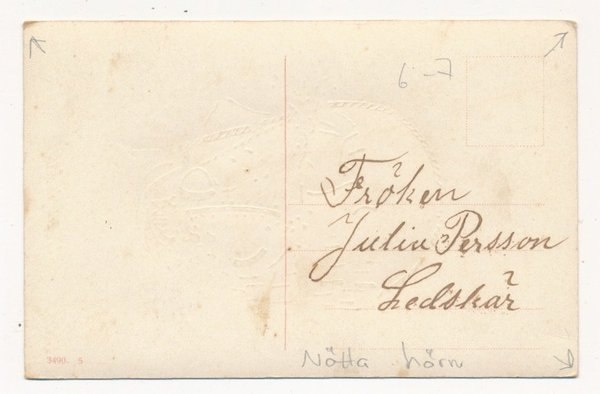 6-7
Fröken
Julia Persson
Ledskär
3490. 5
Nötta hörn